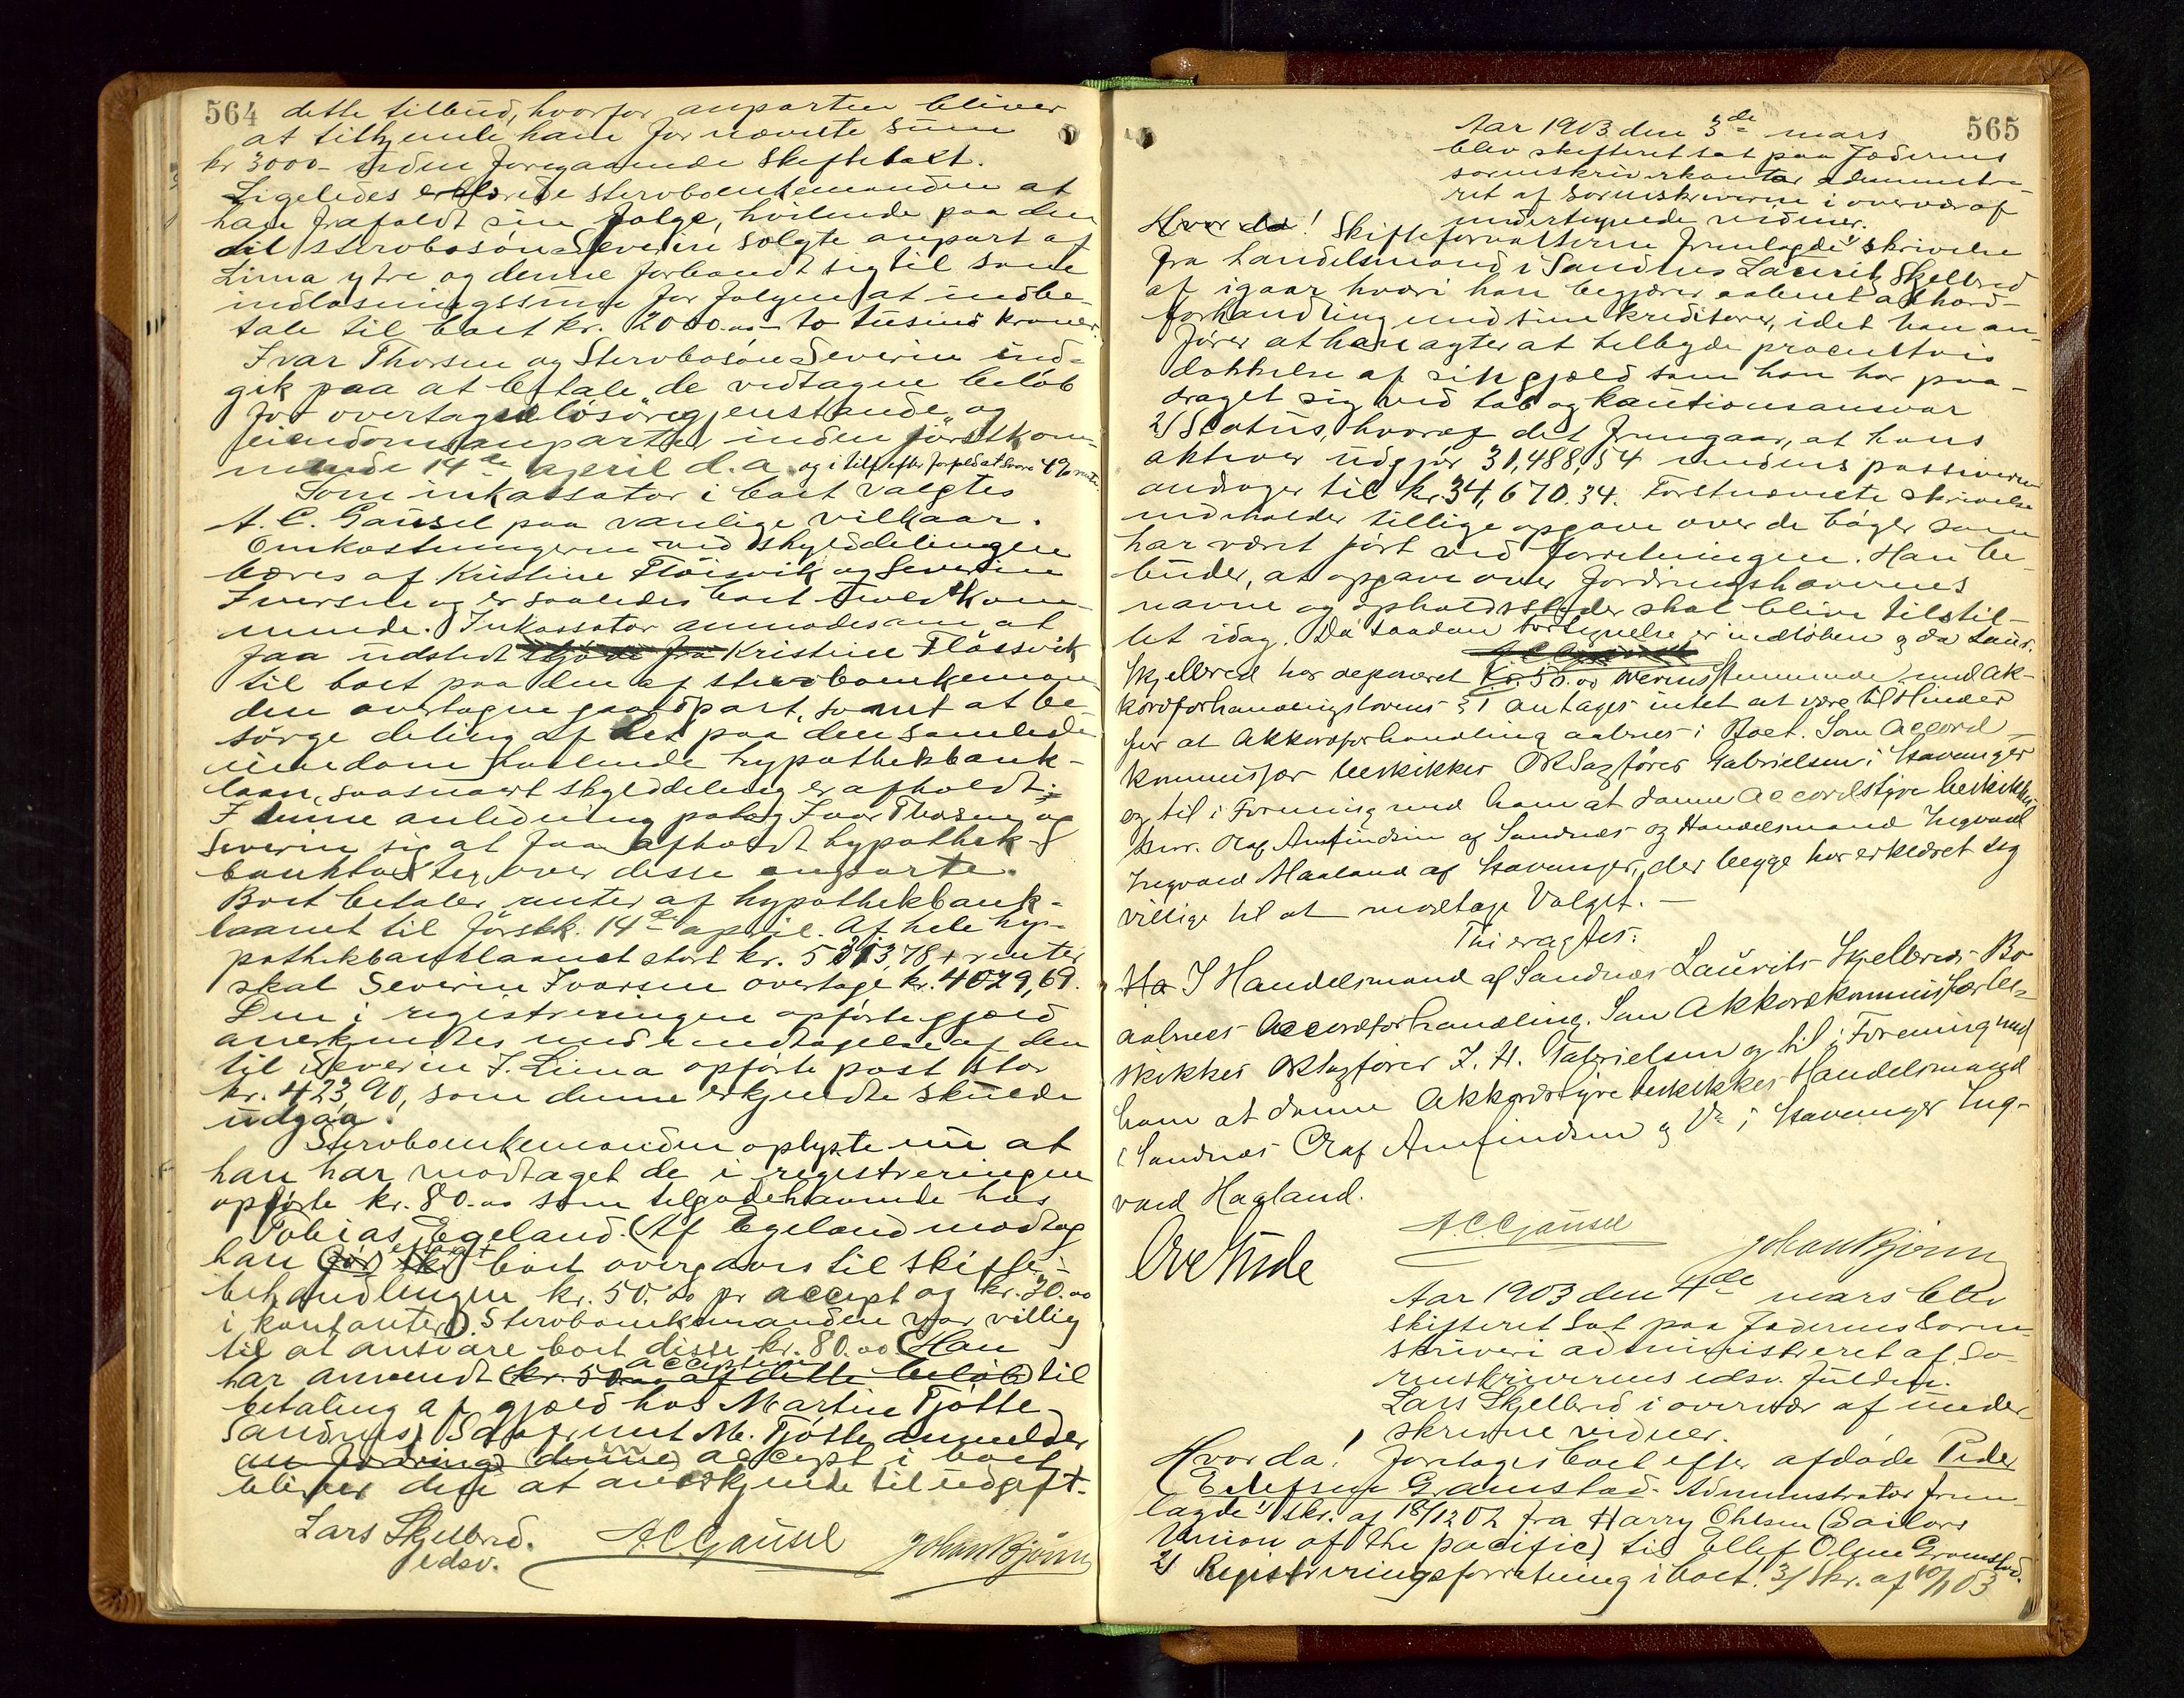 564
dette tilbud, hvorfor anparten bliver
at tilkjende ham for nævnte sum
kr 3000 - siden foregaaende skiftetakt.
Ligeledes erklærede stervboenkemanden at
han frafaldt sin følge, hvilende paa den
til stervbosøn Severin solgte anpart af
Lima ytre og denne forbandt sig til som
indløsningssum for følgen at indbe-
tale til boet kr. 2000.00 - to tusind kroner.
Ivar Thorsen og Stervbosøn Severin ind-
gik paa at betale de vedtagne beløb
for overtagne løsøregjenstande og
eiendomsanparter inden førstkom-
mende 14de april d.a. og i tilf. efter forfald at svare 4% rente.
Som inkassator i boet valgtes
A. C. Gausel paa vanlige vilkaar.
Omkostningerne ved skylddelingen
bæres af Kristine Fløisvik og Severin
Iversen og er saaledes boet uvedkom-
mende. Inkassator anmodes om at
faa udstedt skjøde fra Kristine Fløisvik
til boet paa den af stervboenkeman-
den overtagne gaardpart, samt at be-
sørge deling af det paa den samlede
eiendom heftende hypothekbank-
laan, saasnart skylddeling er afholdt.
I denne anledning paatog Ivar Thorsen og
Severin sig at faa afholdt hypothek-
banktakst over disse anparter.
Boet betaler renter af hypothekbank-
laanet til førstk. 14de april. Af hele hy-
pothekbanklaanet stort kr. 5313,78 + renter
skal Severin Ivarsen overtage kr. 4029,69.
Den i registreringen opførte gjæld
anerkjendtes med undtagelse af den
til Severin I. Lima opførte post stor
kr. 423,90, som denne erkjendte skulde
udgaa.
Stervboenkemanden oplyste nu at
han har modtaget de i registreringen
opførte kr. 80.00 som tilgodehavende hos
Tobias Egeland. (Af Egeland modtog
han (før) efterat boet overgaves til skifte-
behandlingen kr. 50.00 pr accept og kr. 30.00
i kontanter). Stervboenkemanden var villig
til at ansvare boet disse kr. 80.00 (Han
har anvendt (kr. 50.00 af dette beløb) accepten til
betaling af gjæld hos Martin Tjøtte
Sandnes) Saafremt M. Tjøtte anmelder
en fordring denne accept i boet
bliver dette at anerkjende til udgift.
Lars Skjelbred.
edsv.
A C Gausel
Johan Bjønn
565
Aar 1903 den 3de mars
blev skifteret sat paa Jæderens
sorenskriverkontor administre-
ret af sorenskriveren i overvær af
undertegnede vidner.
Hvor da! Skifteforvalteren fremlagde 1/ skrivelse
fra handelsmand i Sandnes Laurits Skjelbred
af igaar hvori han begjærer aabnet akkord-
forhandling med sine kreditorer, idet han an-
fører at han agter at tilbyde procentvis
dækkelse af sin gjæld som han har paa-
draget sig ved tab og kautionsansvar
2/ Status, hvoraf det fremgaar, at hans
aktiver udgjør 31,488,54 medens passiverne
andrager til kr. 34,670.34. Førstnævnte skrivelse
indeholder tillige opgave over de bøger som
har været ført ved forretningen. Han be-
buder, at opgave over fordringshavernes
navne og opholdssteder skal blive tilstil-
let idag. Da saadan fortegnelse er indløben og da Laur.
Skjelbred har deponeret Kr. 50.00 overensstemmende med Ak-
kordforhandlingslovens § 1 antages intet at være til Hinder
for at Akkordforhandling aabnes i Boet. Som Accord-
kommissær beskikkes ORSagfører Gabrielsen i Stavanger
og til i Forening med ham at danne Accordstyre beskikkes
Hrr. Olaf Amfindsen af Sandnes og Handelsmand Ingvald
Ingvald Haaland af Stavanger, der begge har erklæret sig
villige til at modtage Valget. -
Thi eragtes:
Ha I Handelsmand af Sandnes Laurits Skjelbreds Bo
aabnes Accordforhandling. Som Akkordkommissær be-
skikkes ORSagfører J. H. Gabrielsen og til i Forening med
ham at danne Akkordstyre beskikkes Handelsmand
i Sandnes Olaf Amfindsen og Do i Stavanger Ing-
vald Haaland.
A. C. Gausel
Johan Bjønn
Aar 1903 den 4de mars blev
skifteret sat paa Jæderens Soren-
skriveri administreret af So-
renskriverens edsv. Fuldm.
Lars Skjelbred i overvær af under-
skrevne vidner.
Hvor da! Foretages boet efter afdøde Peder
Ellefsen Gramstad. Administrator frem-
lagde 1/ skr. af 18/12 02 fra Harry Ohlsen (Sailors
Union of the pacific) til Ellef Olsen Gramstad.
2/ Registreringsforretning i boet. 3/ Skr. af 10/1 03